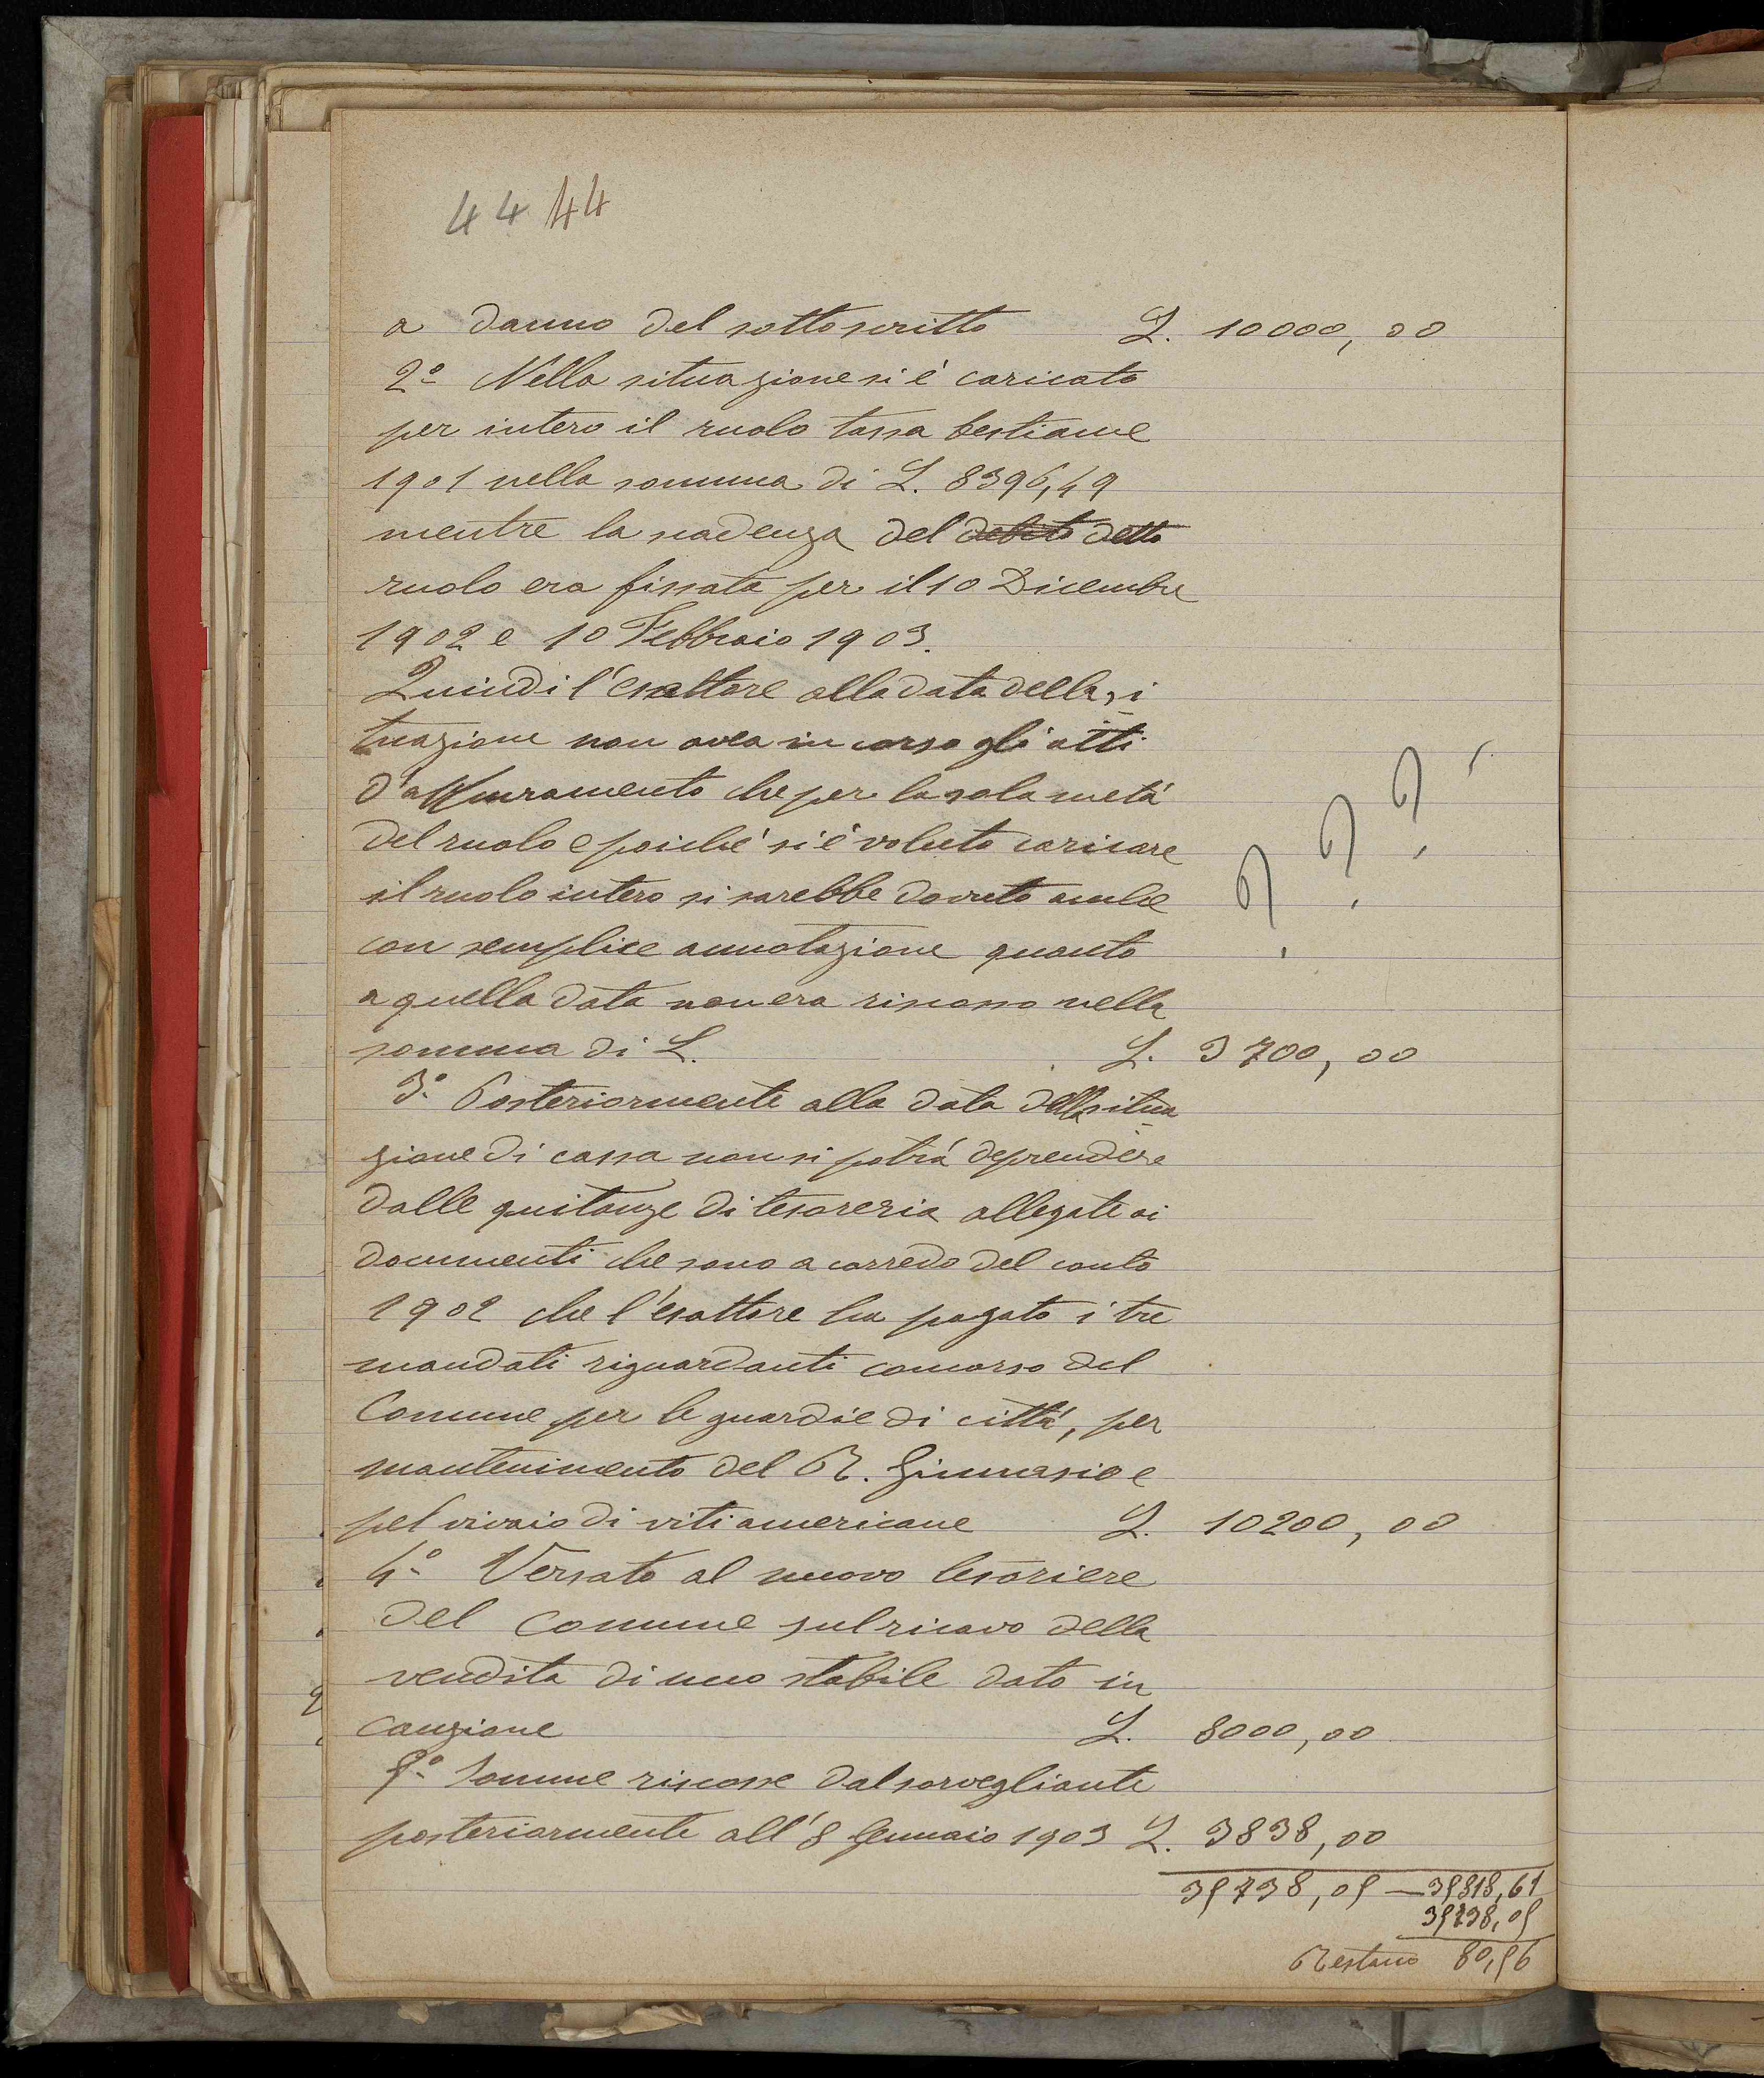 44 44
a danno del sottoscritto L. 10000,00
2º Nella situazione si è caricato
per intero il ruolo tassa bestiame
1901 nella somma di L. 8396,49
mentre la scadenza del debito detto
ruolo era fissata per il 10 Dicembre
1902 e 10 Febbraio 1903.
Quindi l'esattore alla data della si
tuazione non avea in corso gli atti
d'appuramento che per la sola metà
del ruolo e poichè si è voluto caricare
il ruolo intero si sarebbe dovuto anche
con semplice annotazione quanto
a quella data non era riscosso nella
somma di L. L. 3700,00
3º Posteriormente alla data della situa
zione di cassa non si potrà deprendere
dalle quitanze di tesoreria allegate ai
documenti che sono a corredo del conto
1902 che l'esattore ha pagato i tre
mandati riguardanti concorso del
Comune per le guardie di città, per
mantenimento del R. Ginnasio e
pel vivaio di viti americane L. 10200,00
4º Versato al nuovo tesoriere
del Comune sul ricavo della
vendita di uno stabile dato in
cauzione L. 8000,00
5º Somme riscosse dal sorvegliante
posteriormente all'8 Gennaio 1903 L. 3838,00
35738,05 — 35818,61
35738,05
Restano 80,56
? ? ?